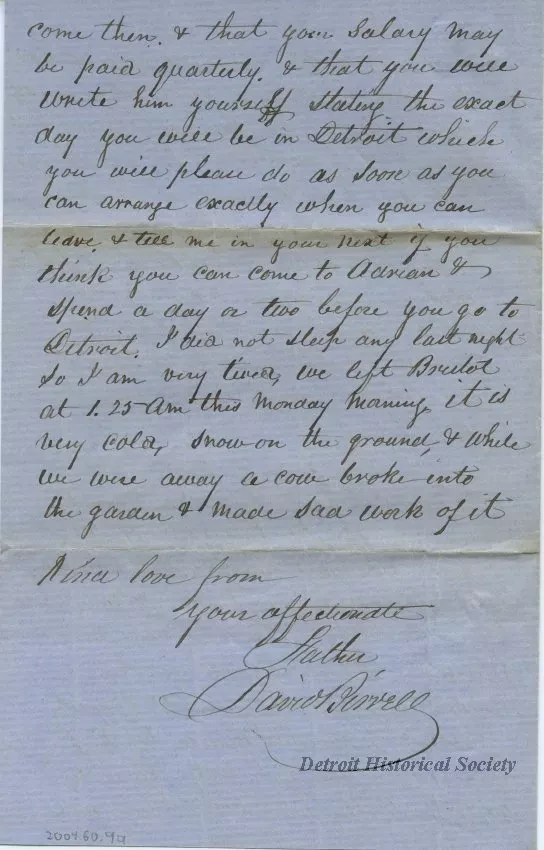 come then. & that your Salary may
be paid quarterly. & that you will
write him yourself stating the exact
day you will be in Detroit which
you will please do as soon as you
can arrange exactly when you can
leave, & tell me in your next if you
think you can come to Adrian &
spend a day or two before you go to
Detroit. I did not sleep any last night
So I am very tired, we left Bristol
at 1.25 Am this Monday Morning, it is
very cold, snow on the ground, & while
we were away a cow broke into
the garden & made sad work of it
Kind love from
your affectionate
Father
David Bissell
Detroit Historical Society
2004.60.9a